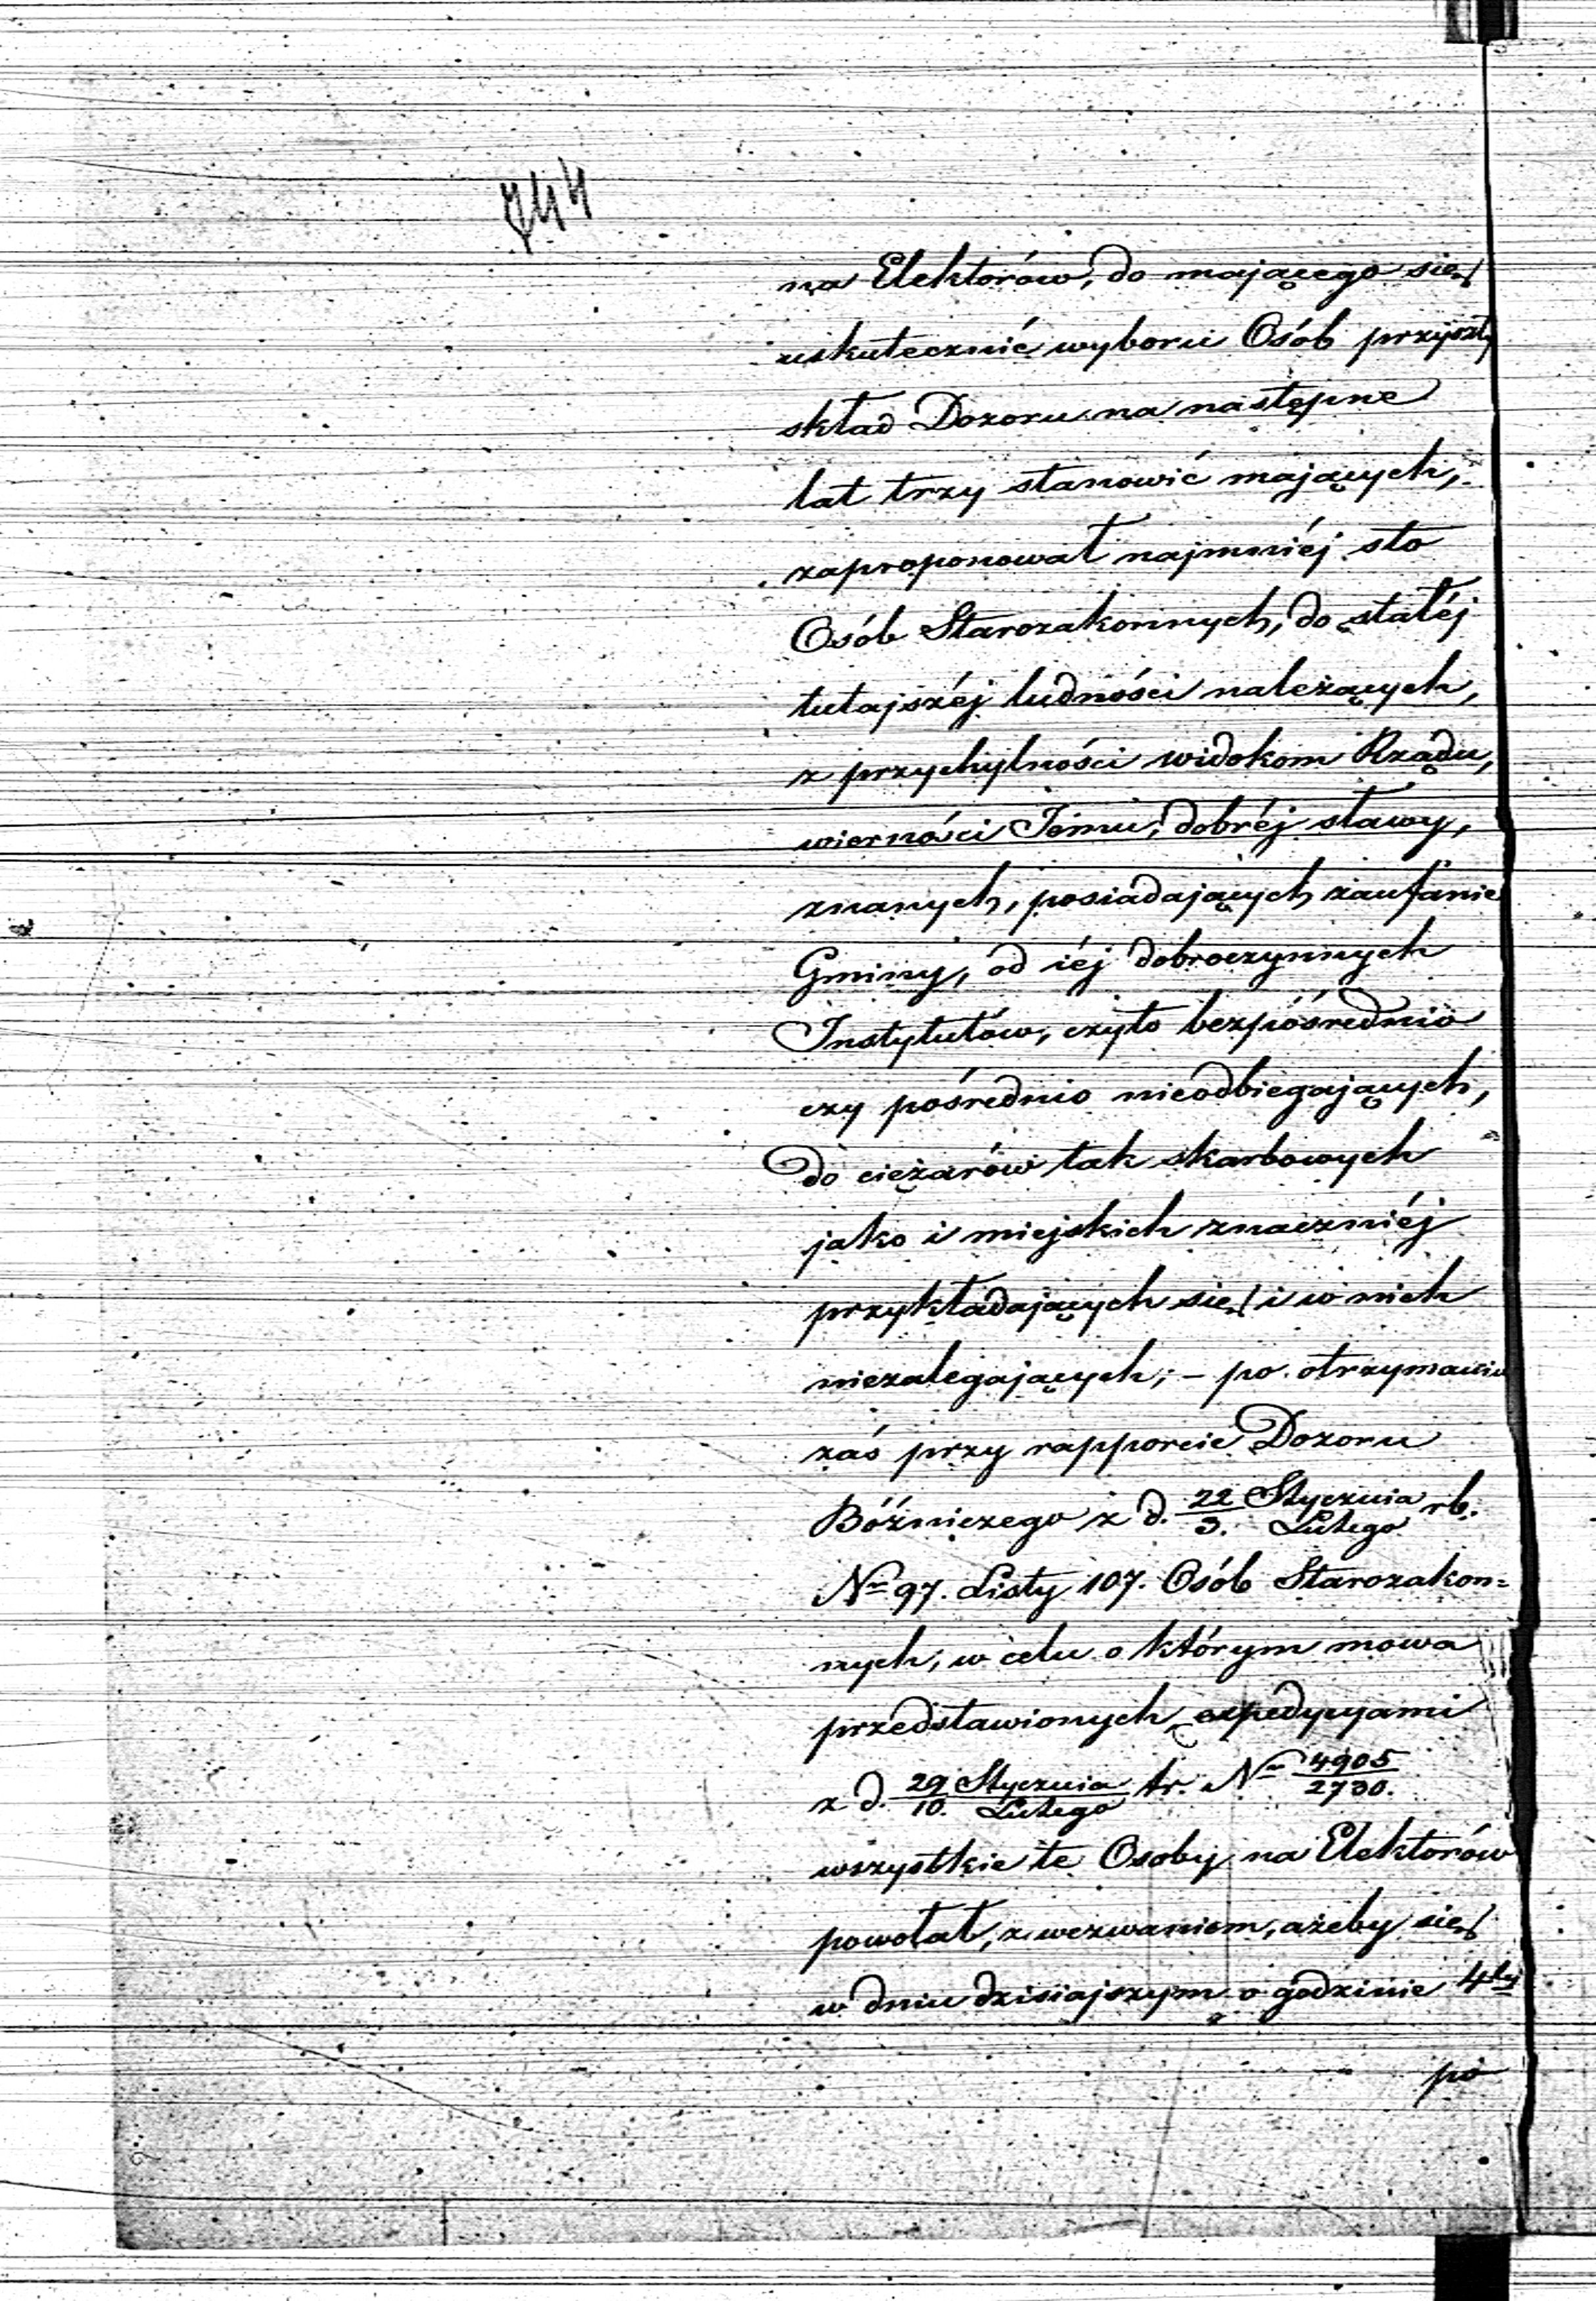 744
na Elektorów, do mającego się
uskutecznić wyboru Osób przyszły
skład Dozoru na następne
lat trzy stanowić mających,
zaproponował najmniéj sto
Osób Starozakonnych, do stałéj
tutajszéj ludności należących,
z przychylności widokom Rządu,
wierności Jemu, dobréj sławy,
znanych, posiadających zaufanie
Gminy, od iéj dobroczynnych
Instytutów, czyto bezpośrednio
czy pośrednio nieodbiegających,
do ciężarów tak skarbowych
jako i miejskich znaczniéj
przykładających się i w nich
niezalegających; – po otrzymaniu
zaś przy rapporcie Dozoru
Bóżniczego z d. 22/3. Stycznia/Lutego rb.
Nr 97. Listy 107. Osób Starozakon=
nych, w celu o którym mowa
przedstawionych, expedycyami
z d. 29/10. Stycznia/Lutego tr. Nr 4905/2730.
wszystkie te Osoby na Elektorów
powołał, z wezwaniem, ażeby się
w dniu dzisiajszym o godzinie 4tej
po